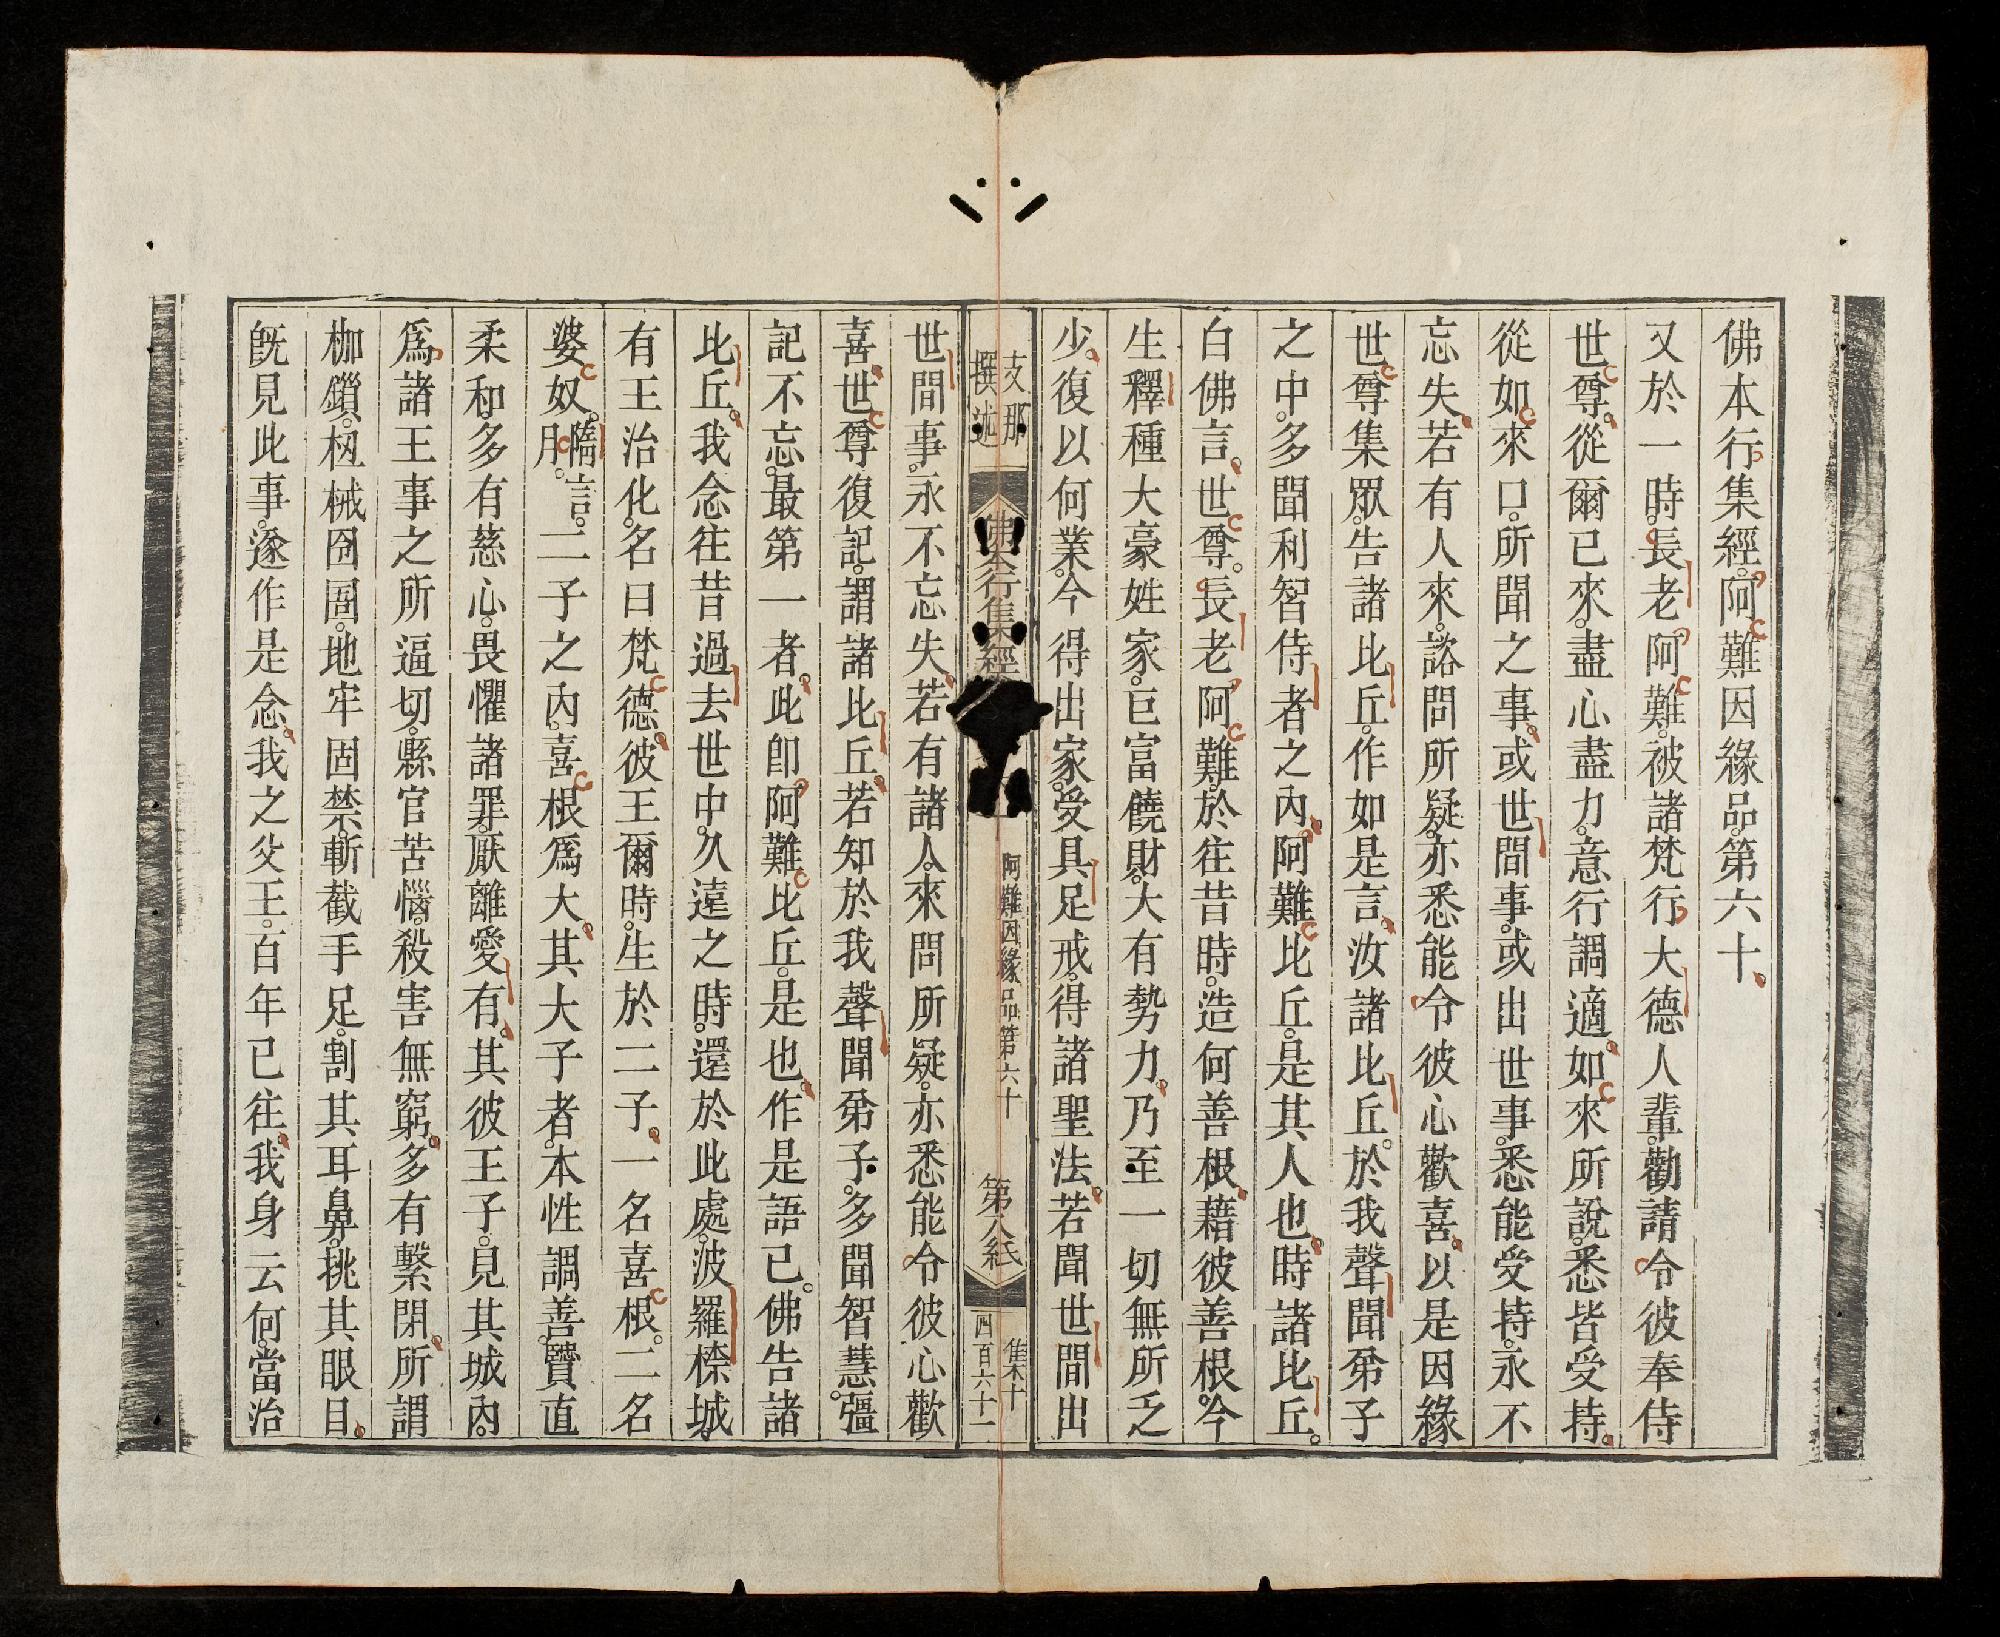 佛本行集經。阿難因緣品。第六十。
又於一時。長老阿難。被諸梵行大德人輩。勸請令彼奉侍
世尊。從爾已來。盡心盡力。意行調適。如來所說。悉皆受持。
從如來口。所聞之事。或世間事。或出世事。悉能受持。永不
忘失。若有人來。諮問所疑。亦悉能令彼心歡喜。以是因緣。
世尊集眾。告諸比丘。作如是言。汝諸比丘。於我聲聞弟子
之中。多聞利智侍者之內。阿難比丘。是其人也。時諸比丘。
白佛言。世尊。長老阿難。於往昔時。造何善根。藉彼善根。今
生釋種大豪姓家。巨富饒財。大有勢力。乃至一切無所乏
少。復以何業。今得出家。受具足戒。得諸聖法。若聞世間出
支那
撰述
佛本行集經
阿難因緣品第六十
第八紙
集十
四百六十二
世間事。永不忘失。若有諸人。來問所疑。亦悉能令彼心歡
喜。世尊復記。謂諸比丘。若知於我聲聞弟子。多聞智慧。彊
記不忘。最第一者。此即阿難比丘。是也。作是語已。佛告諸
比丘。我念往昔過去世中。久遠之時。還於此處。波羅㮈城。
有王治化。名曰梵德。彼王爾時。生於二子。一名喜根。二名
婆奴。隋言月。二子之內。喜根為大。其大子者。本性調善。賢直
柔和。多有慈心。畏懼諸罪。厭離愛有。其彼王子。見其城內。
爲諸王事之所逼切。縣官苦惱。殺害無窮。多有繫閉。所謂
枷鎖。杻械囹圄。地牢固禁。斬截手足。割其耳鼻。挑其眼目。
旣見此事。遂作是念。我之父王。百年已往。我身云何當治